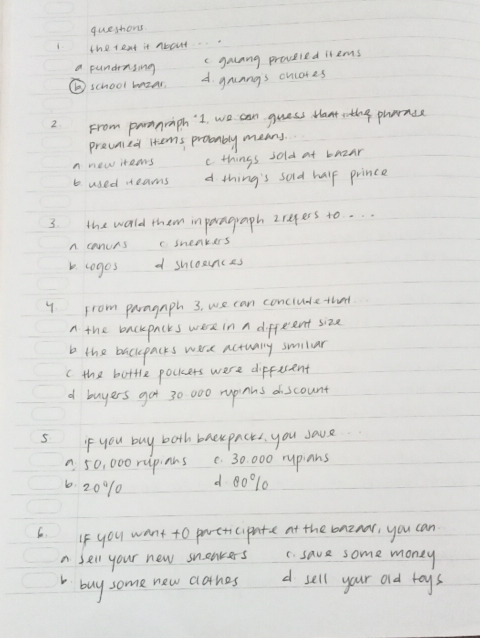 questions
1. the text it about ....
a fundrasing c. galang proveled items
b school bazar. d. galang's chlotes
2 From paragraph 1, we can guess that the pharase
prevaled items, probably means...
a new items c. things sold at bazar
b used iteams d. thing's sold half prince
3. the world them in paragraph 2 refers to ....
a canvas c. sneakers
b. logos d shloelaces
4 From paragraph 3, we can conclude that ...
a the backpacks were in a different size
b the backpacks were actually smiliar
c the bottle pockets were different
d buyers got 30 000 rupiahs discount
5 if you buy both backpacks, you save ....
a. 50,000 rupiahs c. 30.000 rupiahs
b. 20% d. 80%
6. if you want to parcticipate at the bazaar, you can
a sell your new sneakers c. save some money
b buy some new clothes d. sell your old toys